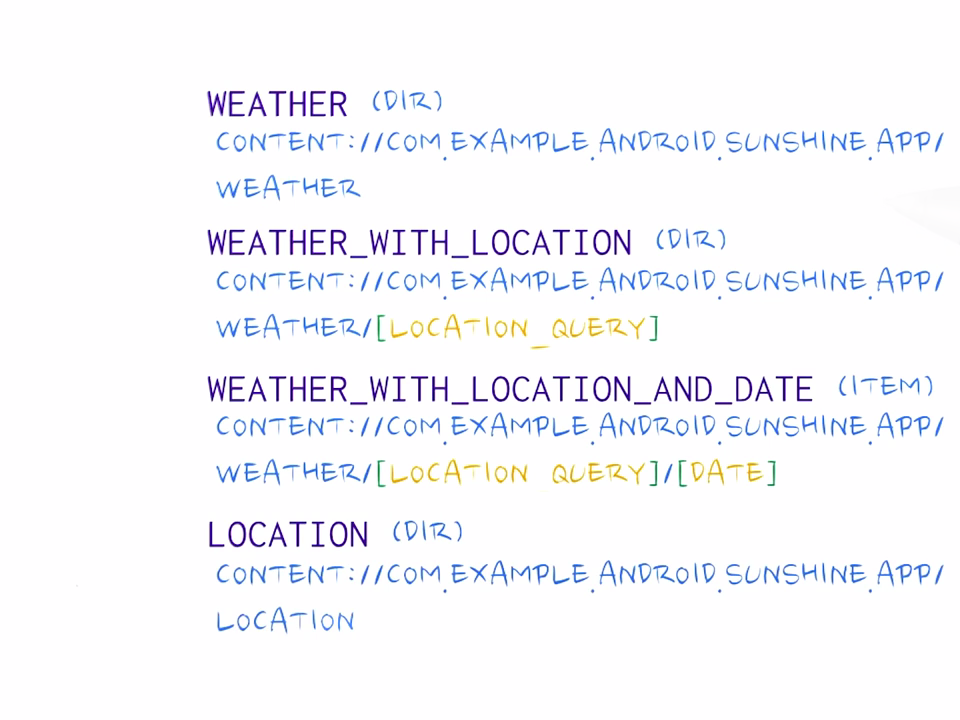 WEATHER (DIR)
CONTENT://COM.EXAMPLE.ANDROID.SUNSHINE.APP/
WEATHER
WEATHER_WITH_LOCATION (DIR)
CONTENT://COM.EXAMPLE.ANDROID.SUNSHINE.APP/
WEATHER/[LOCATION_QUERY]
WEATHER_WITH_LOCATION_AND_DATE (ITEM)
CONTENT://COM.EXAMPLE.ANDROID.SUNSHINE.APP/
WEATHER/[LOCATION QUERY]/[DATE]
LOCATION (DIR)
CONTENT://COM.EXAMPLE.ANDROID.SUNSHINE.APP/
LOCATION